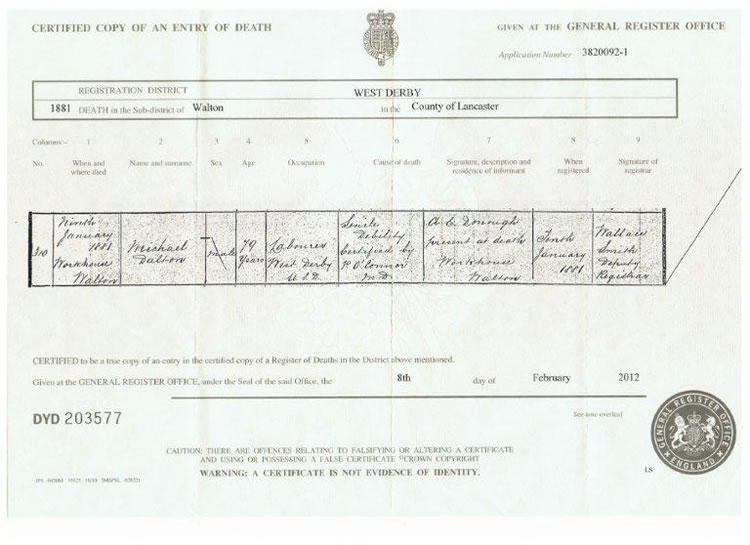 CERTIFIED COPY OF AN ENTRY OF DEATH
GIVEN AT THE GENERAL REGISTER OFFICE
Application Number 3820092-1
REGISTRATION DISTRICT WEST DERBY
1881 DEATH in the Sub-district of Walton in the County of Lancaster
Columns:- 1 2 3 4 5 6 7 8 9
No. When and where died Name and surname Sex Age Occupation Cause of death Signature, description and residence of informant When registered Signature of registrar
310
Ninth January 1881 Workhouse Walton
Michael Dalton
male
79 years
Labourer West Derby
Senile Debility Certified by P O'Connor M.D.
present at death Workhouse Walton
Tenth January 1881
Wallace Smith Deputy Registrar
CERTIFIED to be a true copy of an entry in the certified copy of a Register of Deaths in the District above mentioned.
Given at the GENERAL REGISTER OFFICE, under the Seal of the said Office, the 8th day of February 2012
DYD 203577
See note overleaf
CAUTION: THERE ARE OFFENCES RELATING TO FALSIFYING OR ALTERING A CERTIFICATE
AND USING OR POSSESSING A FALSE CERTIFICATE ©CROWN COPYRIGHT
WARNING: A CERTIFICATE IS NOT EVIDENCE OF IDENTITY.
GENERAL REGISTER OFFICE
ENGLAND